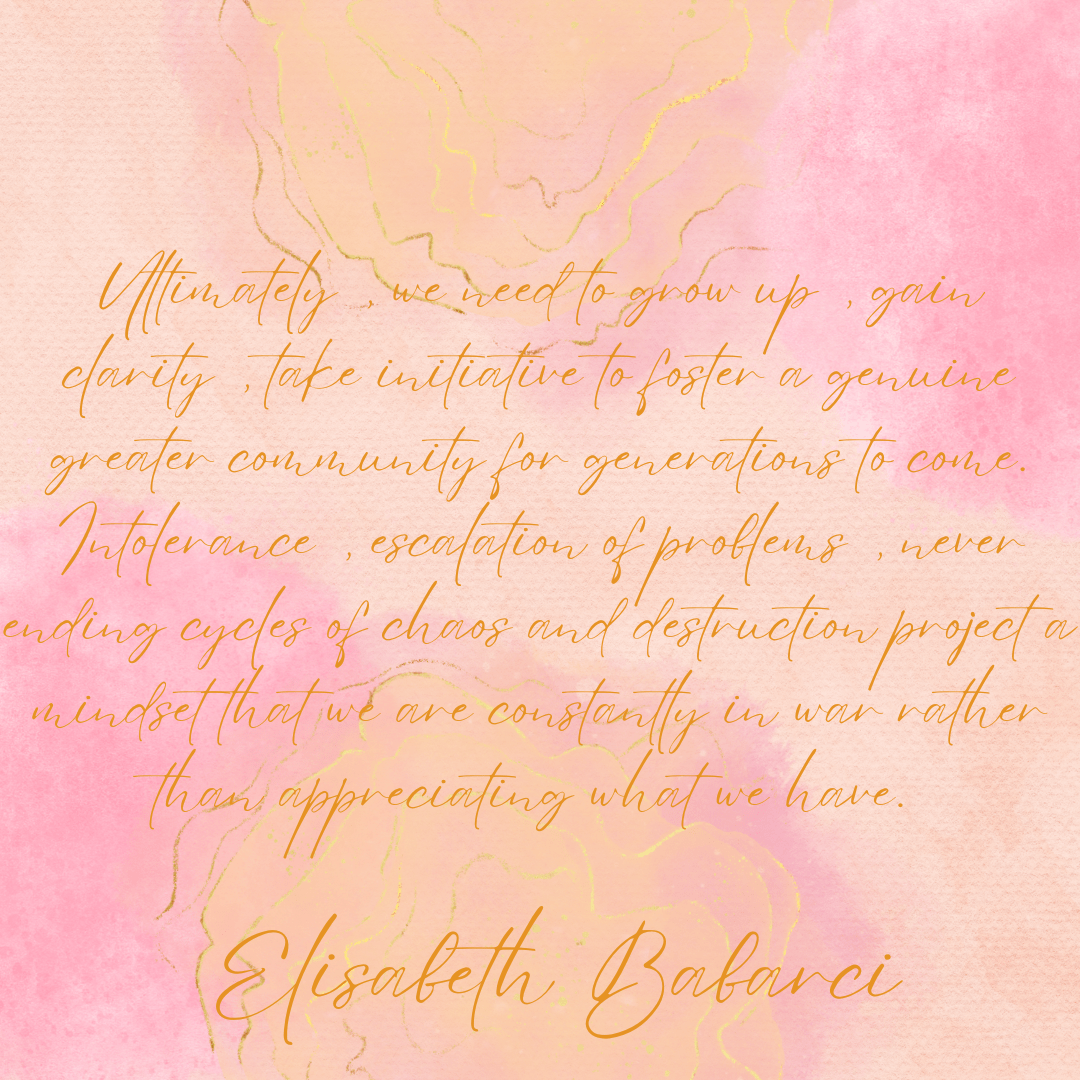 Ultimately , we need to grow up , gain
clarity , take initiative to foster a genuine
greater community for generations to come.
Intolerance , escalation of problems , never
ending cycles of chaos and destruction project a
mindset that we are constantly in war rather
than appreciating what we have.
Elisabeth Babarci